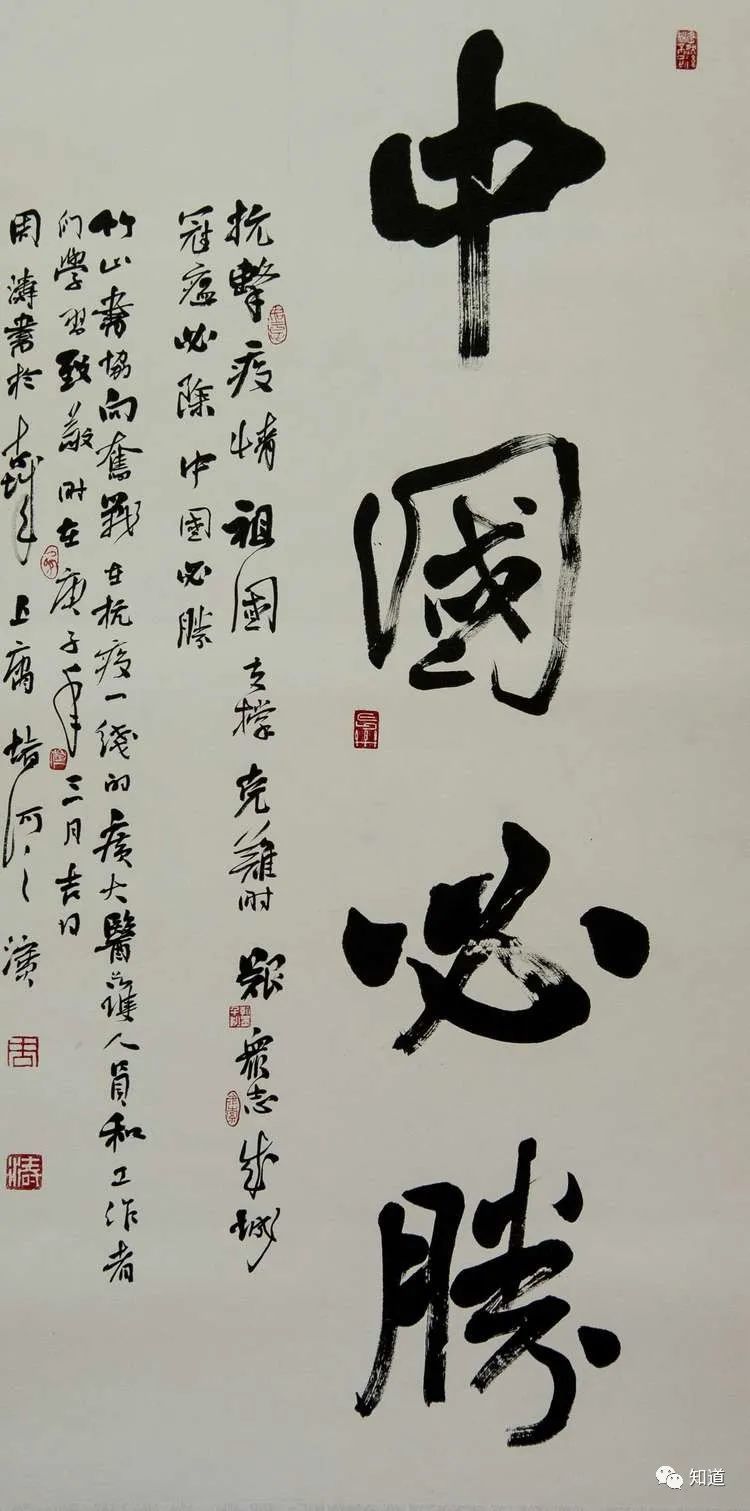 中國必勝
抗擊疫情 祖國支撐 克難時 眾志成城
冠瘟必除 中國必勝
竹山書協向奮戰在抗疫一綫的廣大醫護人員和工作者
们學習致敬 时在庚子年三月吉日
周濤書於 上庸堵河之濱
周
濤
知道